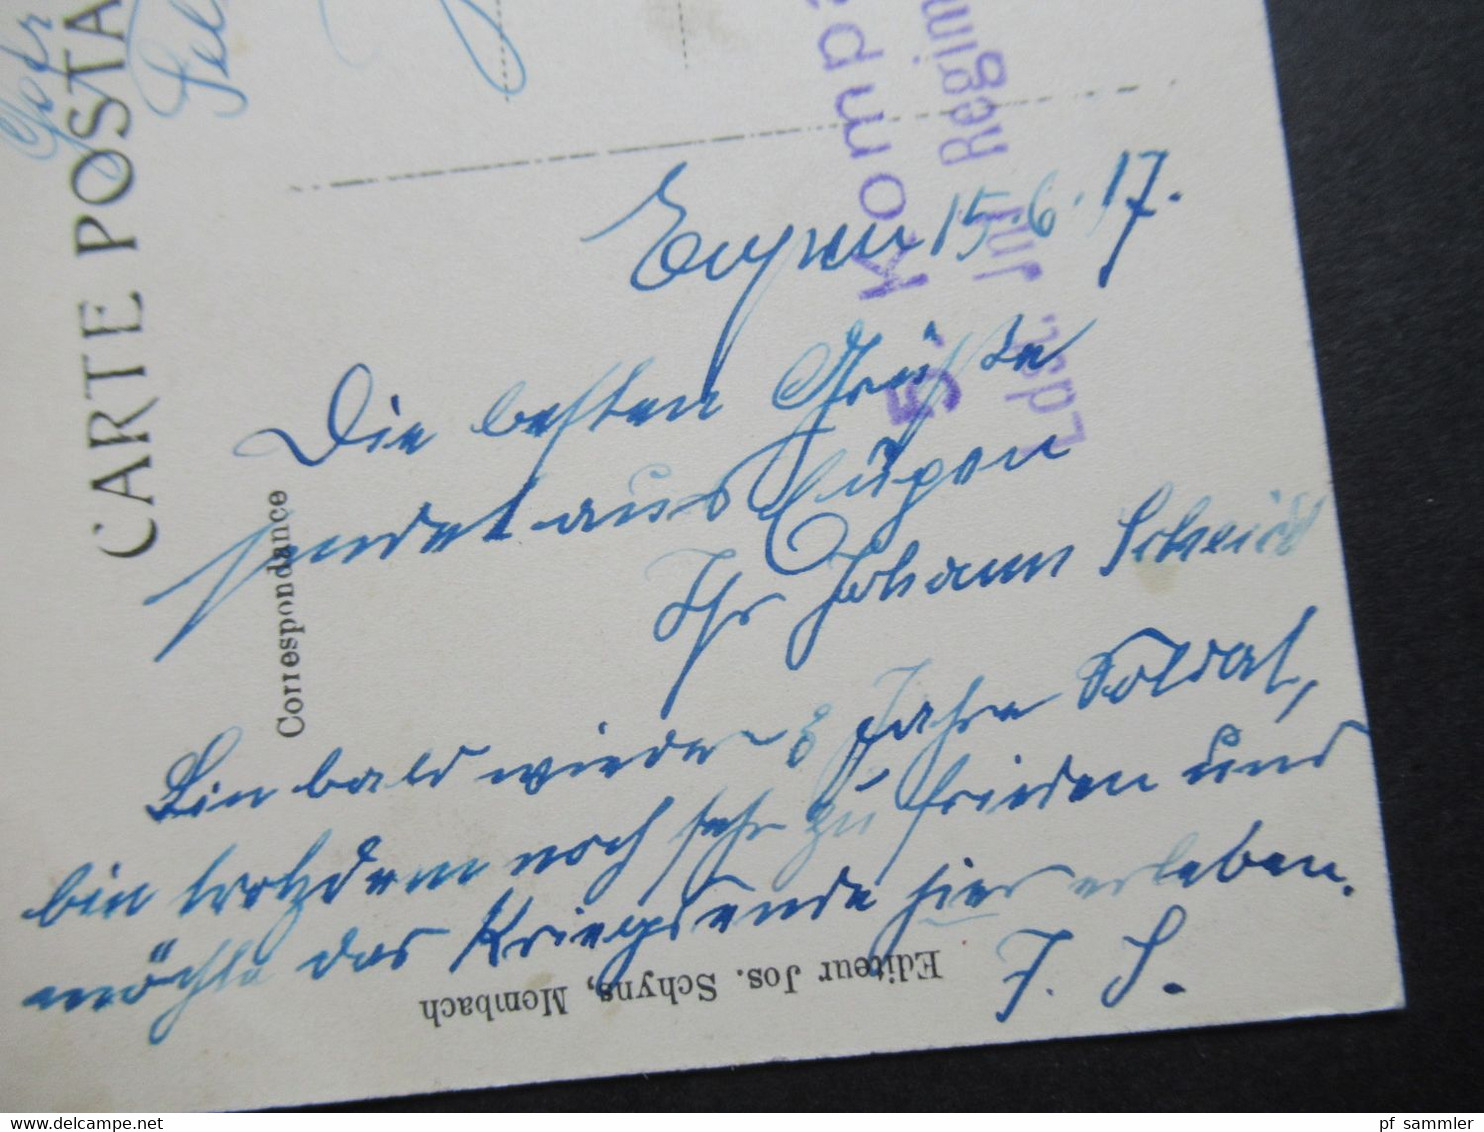 CARTE POSTA
Correspondance
5. Komp
Ldst. Inf Regim
Eupen 15.6.17.
Die besten Grüße
sendet aus Eupen
Ihr Johann Scheidt
Bin bald wieder 3 Jahre Soldat,
bin trotzdem noch sehr zufrieden und
möchte das Kriegsende hier erleben.
J. S.
Editeur Jos. Schyns, Membach
pf_sammler